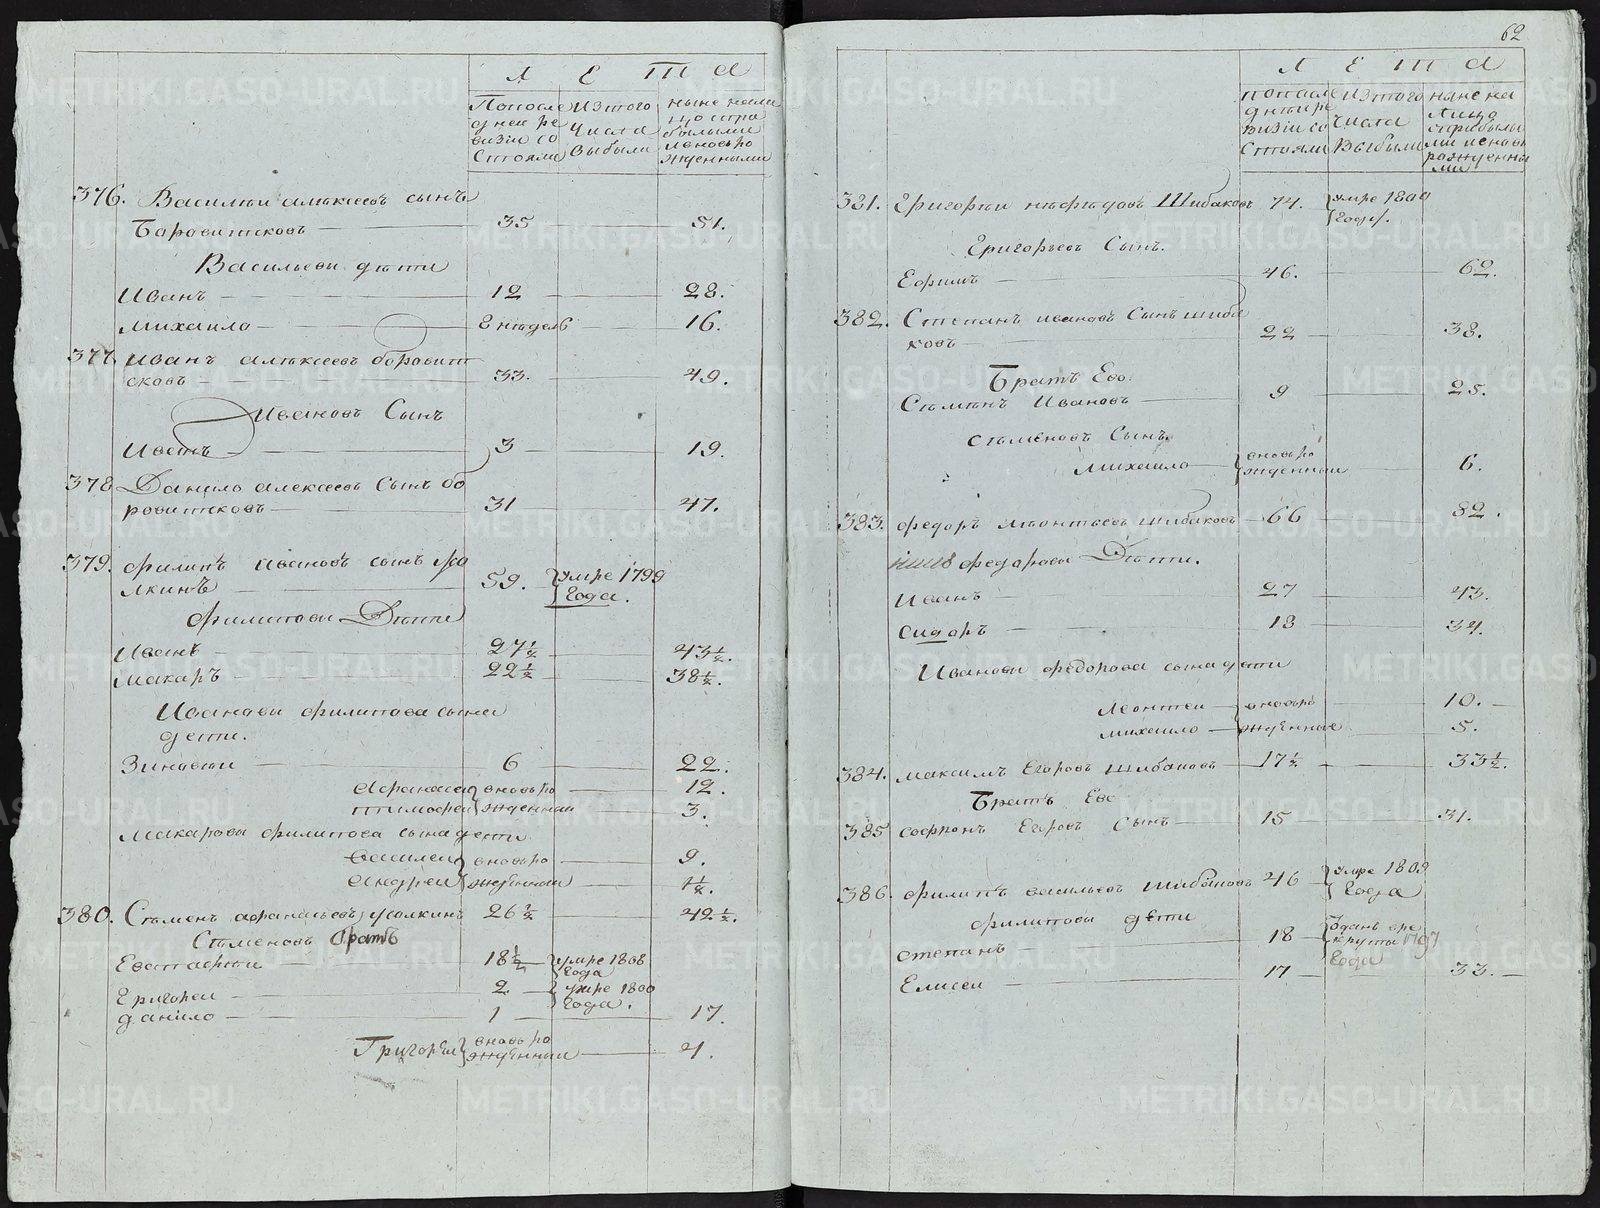 Л Е Т А
Попосле
дней ре
визiи со
стояли
Изтого
числа
выбыли
ныне нали
цо спри
былыми
и вновь ро
жденными
376. Василии алѣксеевъ сынъ
Боровитсковъ 35 51.
Васильеви дѣти
Иванъ 12 28.
Михаило 8 недель 16.
377. Иванъ алѣксеевъ боровит
сковъ 33. 49.
Ивановъ Сынъ
Иванъ 3 19.
378. Данило алексеевъ Сынъ бо
ровитсковъ 31 47.
379. Филипъ Ивановъ сынъ
лкинъ 59. умре 1799
года.
Филипови Дѣти
Иванъ 27½ 43½.
Макаръ 22½ 38½.
Иванови филипова сына
дети.
Зиновеи 6 22.
Афанасеи вновь ро 12.
тимофеи жденныи 3.
Макарови филипова сына дети
василеи вновь ро 9.
андреи жденныи 1½.
380. Сѣменъ афанасьевъ усолкинъ 26½ 42½.
Сѣменовъ братъ
Евстафеи 18½ умре 1808
года
Григореи 2 умре 1800
года.
данило 1 17.
Григореи вновь ро
жденныи 4.
62
Л Е Т А
попосле
днеи ре
визiи со
стояли
Изтого
числа
Выбыли
ныне на
лицо
сприбылы
ми и внов
рожденны
ми
381. Григореи нѣфедовъ Шибаковъ 74. умре 1800
года.
Григорьевъ Сынъ.
Ефимъ 46. 62.
382. Степанъ ивановъ Сынъ шиба
ковъ 22 38.
Братъ Ево.
Сѣмѣнъ Ивановъ 9 25.
сѣменовъ Сынъ.
Михаило вновь ро
жденныи 6.
383. федоръ лѣонтьевъ шибаковъ 66 82.
федорови Дѣти.
Иванъ 27 43.
Сидоръ 18 34.
Иванови федорова сына дети
Леонтеи вновь ро 10.
михаило жденные 5.
384. максимъ Егоровъ шибаковъ 17½ 33½.
Братъ Ево
385. софронъ Егоровъ Сынъ 15 31.
386. филипъ васильевъ шибаковъ 46 умре 1809
года
филипови дети
степанъ 18 Зданъ вре
круты 1797
года
Елисеи 17 33.